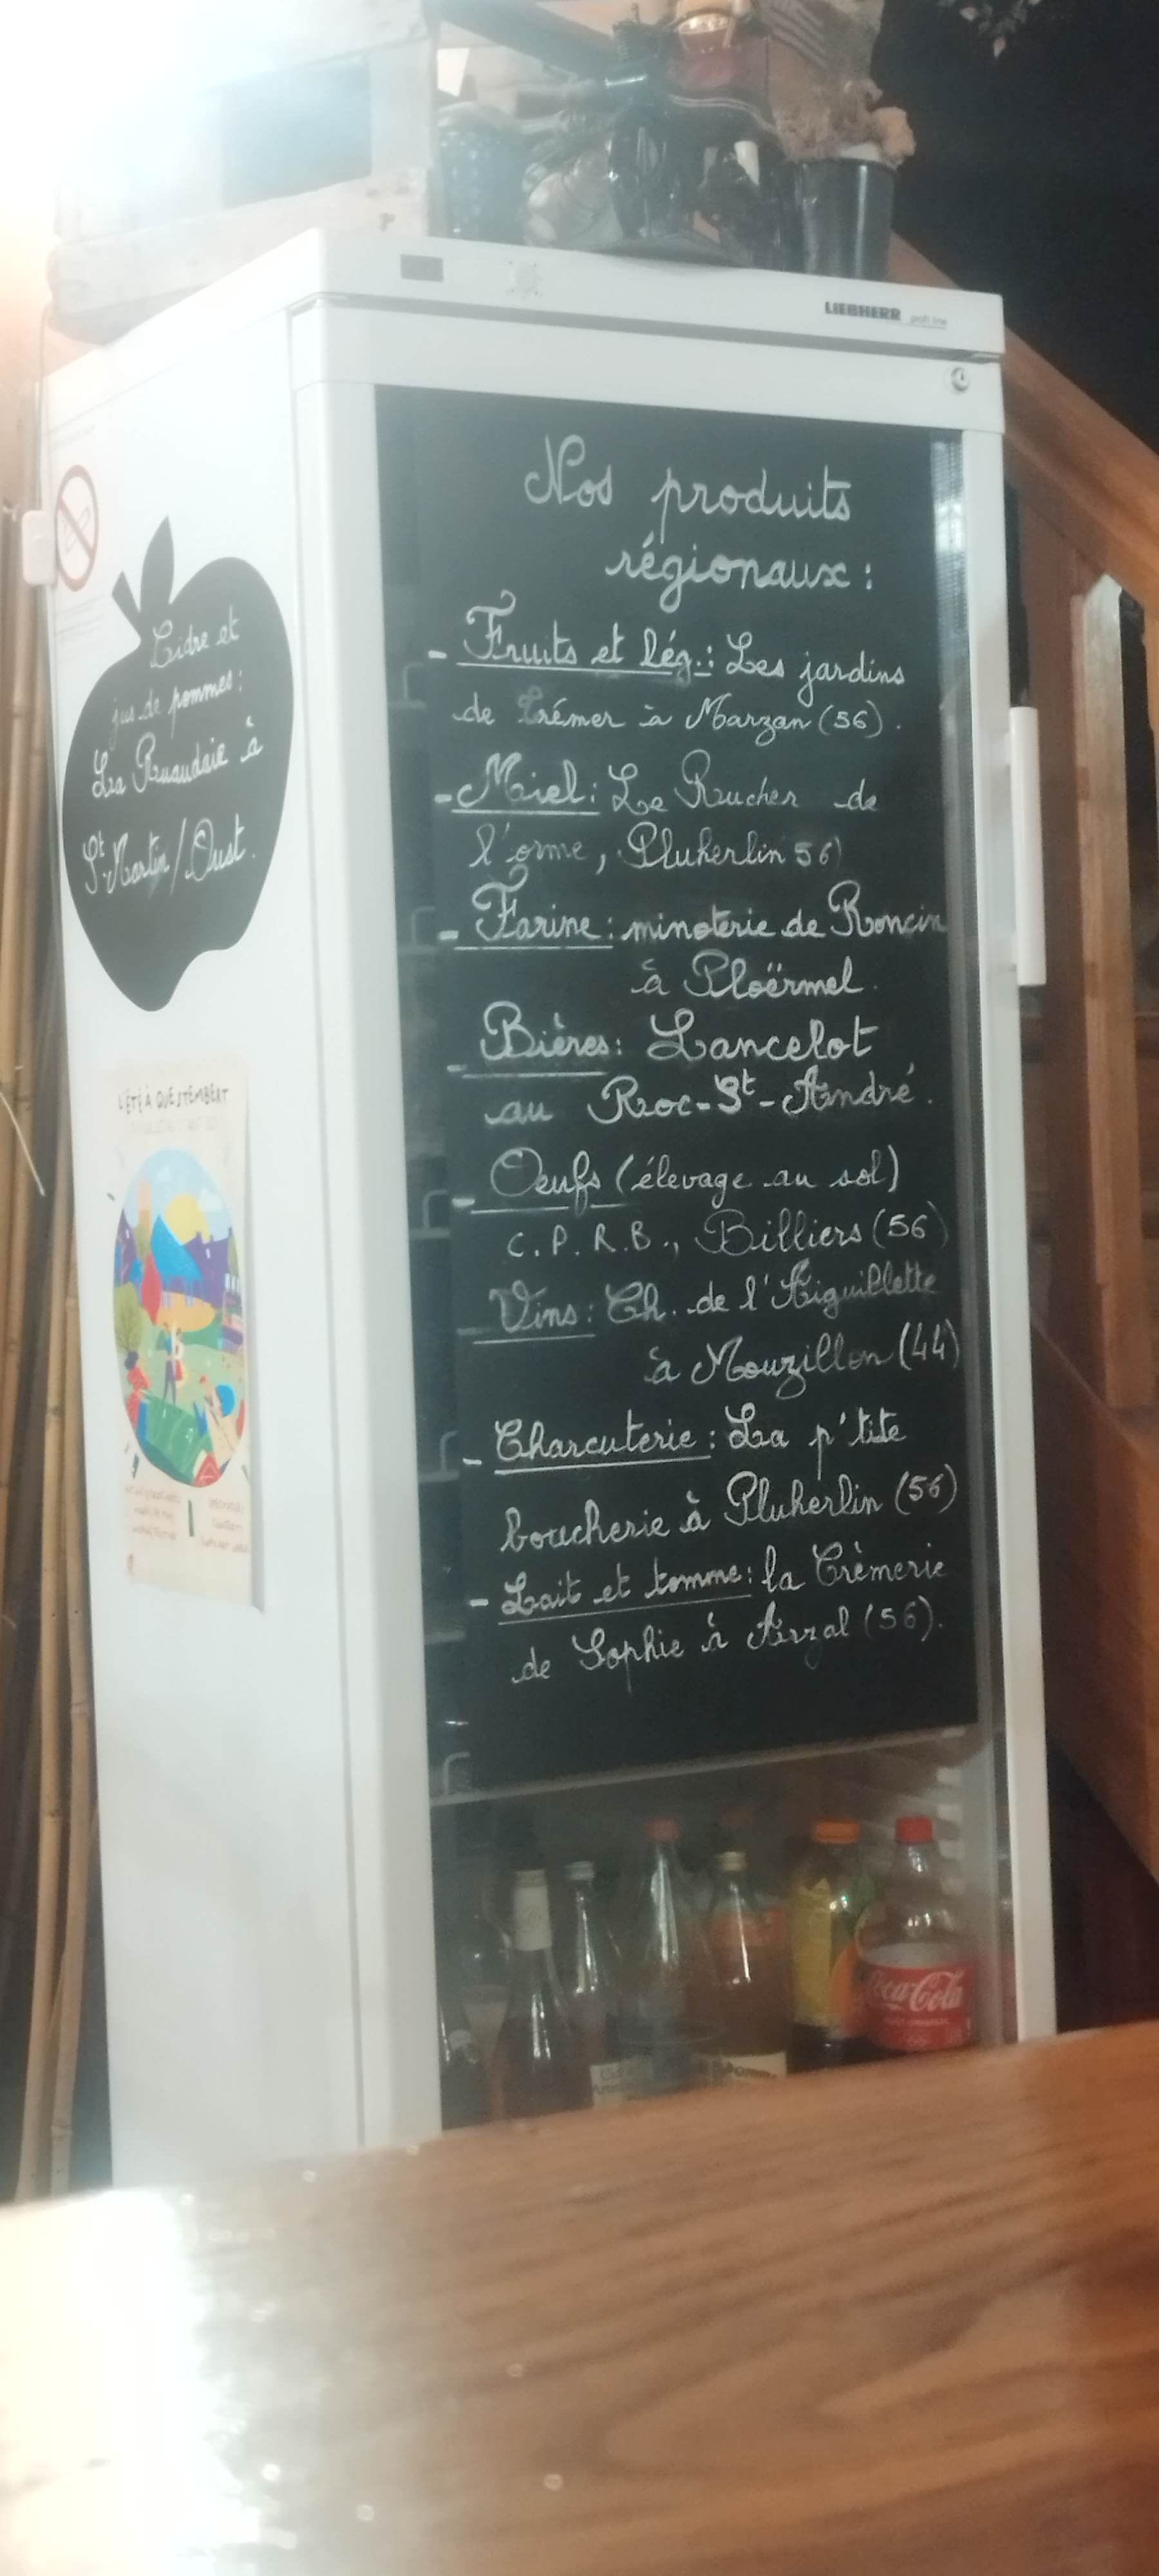 LIEBHERR profi line
Nos produits
régionaux :
- Fruits et lég. : Les jardins
de Trémer à Marzan (56).
- Miel : Le Rucher de
l'orme, Pluherlin 56)
- Farine : minoterie de Roncin
à Ploërmel.
- Bières : Lancelot
au Roc-St-André.
- Oeufs (élevage au sol)
C.P.R.B., Billiers (56)
Vins : Ch. de l'Aiguillette
à Mouzillon (44)
- Charcuterie : La p'tite
boucherie à Pluherlin (56)
- Lait et tomme : la Crèmerie
de Sophie à Arzal (56).
Cidre et
jus de pommes :
La Ruaudaie à
St Martin/Oust.
L'ÉTÉ À QUESTEMBERT
Coca-Cola